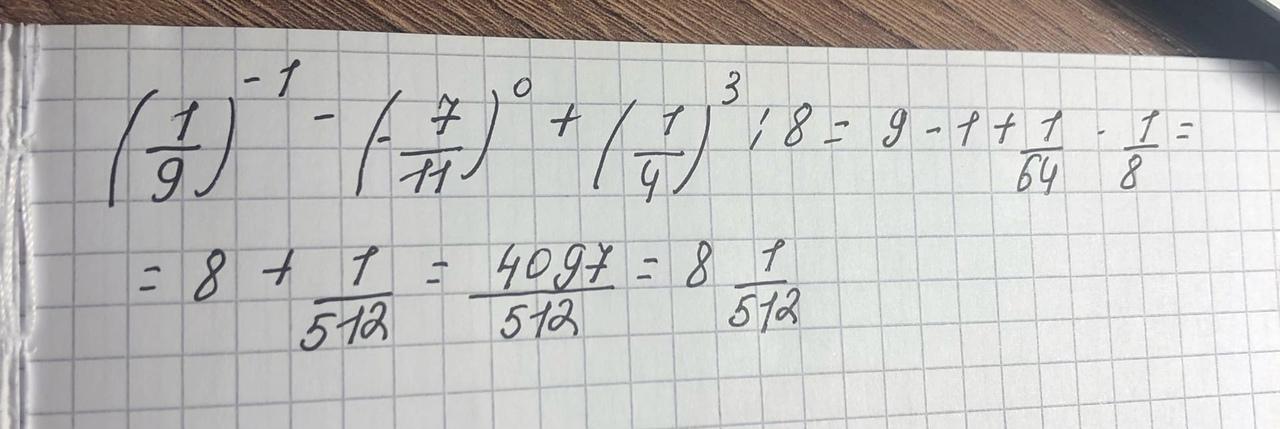 (1/9)^-1 - (-7/11)^0 + (1/4)^3 : 8 = 9 - 1 + 1/64 · 1/8 =
= 8 + 1/512 = 4097/512 = 8 1/512